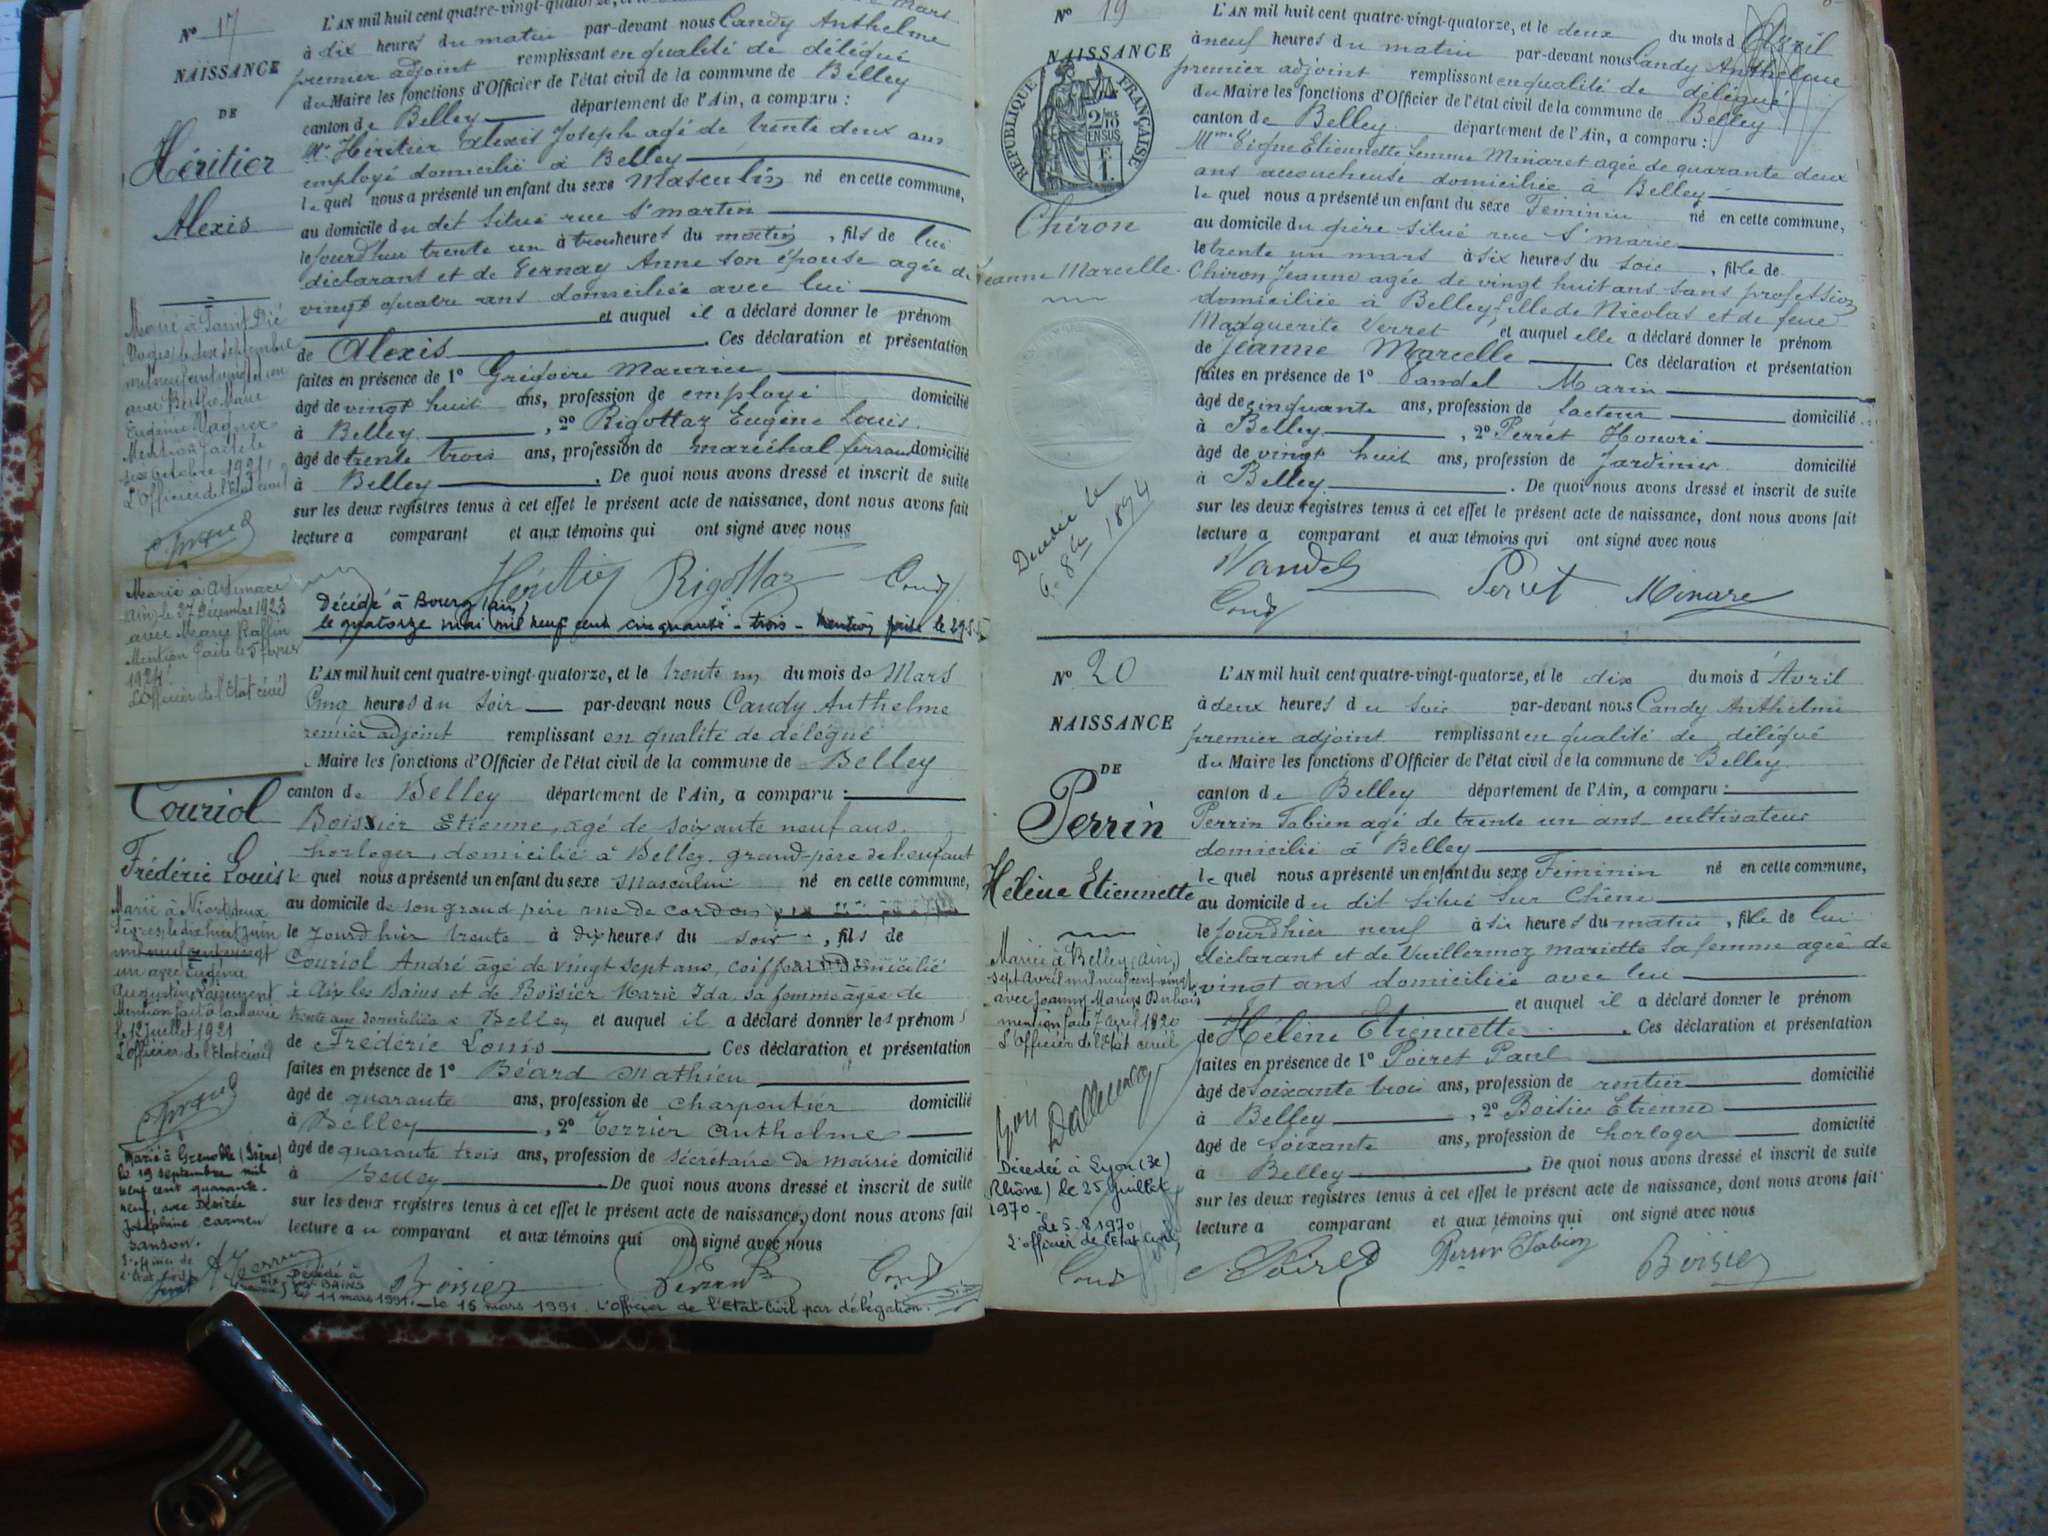 N° 17
NAISSANCE
DE
Héritier
Alexis
L'AN mil huit cent quatre-vingt-quatorze,
à dix heures du matin par-devant nous Candy Anthelme
premier adjoint remplissant en qualité de délégué
du Maire les fonctions d'Officier de l'état civil de la commune de Belley
canton de Belley département de l'Ain, a comparu :
Mr Héritier Alexis Joseph agé de trente deux ans
employé domicilié à Belley
le quel nous a présenté un enfant du sexe Masculin né en cette commune,
au domicile du dit situé rue St martin
le jourd'hui trente un à trois heures du matin, fils de lui
déclarant et de Gernay Anne son épouse agée de
vingt quatre ans domiciliée avec lui
et auquel il a déclaré donner le prénom
de Alexis Ces déclaration et présentation
faites en présence de 1° Grégoire Maurice
âgé de vingt huit ans, profession de employé domicilié
à Belley, 2° Rigottaz Eugène Louis
âgé de trente trois ans, profession de maréchal ferrant domicilié
à Belley. De quoi nous avons dressé et inscrit de suite
sur les deux registres tenus à cet effet le présent acte de naissance, dont nous avons fait
lecture a comparant et aux témoins qui ont signé avec nous
Héritier Rigottaz Candy
Décédé à Bourg (ain)
le quatorze mai mil neuf cent cinquante-trois - Mention
Marié à Saint Dié
Vosges le dix septembre
mil neuf cent vingt et un
avec Berthe Marie
Eugénie Wagner
Mention faite le
six octobre 1921
L'Officier de l'Etat civil
Marié à Artemare
Ain) le 27 Décembre 1923
avec Marie Raffin
Mention faite le 5 fevrier
1924
L'Officier de l'Etat civil
L'AN mil huit cent quatre-vingt-quatorze, et le trente un du mois de Mars
Cinq heures du Soir par-devant nous Candy Anthelme
remier adjoint remplissant en qualité de délégué
Maire les fonctions d'Officier de l'état civil de la commune de Belley
canton de Belley département de l'Ain, a comparu :
Boissier Etienne, agé de soixante neuf ans,
horloger, domicilié à Belley, grand-père de l'enfant
le quel nous a présenté un enfant du sexe masculin né en cette commune,
au domicile de son grand père rue de cordon
le jourd'hier trente à dix heures du soir, fils de
Couriol André âgé de vingt sept ans, coiffeur domicilié
à Aix les Bains et de Boisier Marie Ida sa femme âgée de
trente ans domiciliés à Belley et auquel il a déclaré donner les prénoms
de Frédéric Louis Ces déclaration et présentation
faites en présence de 1° Béard Mathieu
âgé de quarante ans, profession de charpentier domicilié
à Belley, 2° Terrier Anthelme
âgé de quarante trois ans, profession de secrétaire de mairie domicilié
à Belley De quoi nous avons dressé et inscrit de suite
sur les deux registres tenus à cet effet le présent acte de naissance, dont nous avons fait
lecture a u comparant et aux témoins qui ont signé avec nous
Boisier Candy
Couriol
Frédéric Louis
Marié à Niort deux
Sèvres le dix huit juin
mil neuf cent vingt
un avec Eugénie
Augustine
Mention fait à la mairie
le 12 juillet 1921
L'officier de l'Etat civil
Marié à Grenoble (Isère)
le 19 septembre mil
neuf cent quarante-
neuf, avec Désirée
Joséphine Carmen
Sanson.
Décédé à
le 11 mars 1991. - Le 15 mars 1991. L'Officier de l'Etat-Civil par délégation.
N° 19
NAISSANCE
RÉPUBLIQUE FRANÇAISE
Chiron
Jeanne Marcelle
Décédée le
6 8bre 1894
L'AN mil huit cent quatre-vingt-quatorze, et le deux du mois d'Avril
à neuf heures du matin par-devant nous Candy Anthelme
premier adjoint remplissant en qualité de délégué
du Maire les fonctions d'Officier de l'état civil de la commune de Belley
canton de Belley département de l'Ain, a comparu :
Mme Vigne Etiennette femme Minaret agée de quarante deux
ans accoucheuse domiciliée à Belley
le quel nous a présenté un enfant du sexe Feminin né en cette commune,
au domicile du père situé rue Ste marie
le trente un mars à six heures du soir, fille de
Chiron Jeanne agée de vingt huit ans sans profession
domiciliée à Belley, fille de Nicolas et de feue
Marguerite Verret, et auquel elle a déclaré donner le prénom
de Jeanne Marcelle Ces déclaration et présentation
faites en présence de 1° Vandel Marin
âgé de cinquante ans, profession de facteur domicilié
à Belley, 2° Perret Honoré
âgé de vingt huit ans, profession de Jardinier domicilié
à Belley. De quoi nous avons dressé et inscrit de suite
sur les deux registres tenus à cet effet le présent acte de naissance, dont nous avons fait
lecture a comparant et aux témoins qui ont signé avec nous
Vandel Perret Minare
Candy
N° 20
NAISSANCE
DE
Perrin
Hélène Etiennette
L'AN mil huit cent quatre-vingt-quatorze, et le dix du mois d'Avril
à deux heures du soir par-devant nous Candy Anthelme
premier adjoint remplissant en qualité de délégué
du Maire les fonctions d'Officier de l'état civil de la commune de Belley
canton de Belley département de l'Ain, a comparu :
Perrin Fabien agé de trente un ans cultivateur
domicilié à Belley
le quel nous a présenté un enfant du sexe Féminin né en cette commune,
au domicile du dit situé sur Chêne
le jourd'hier neuf à six heures du matin, fille de lui
déclarant et de Vuillermoz Mariette sa femme agée de
vingt ans domiciliée avec lui
et auquel il a déclaré donner le prénom
de Hélène Etiennette. Ces déclaration et présentation
faites en présence de 1° Poiret Paul
âgé de soixante trois ans, profession de rentier domicilié
à Belley, 2° Boisier Etienne
âgé de soixante ans, profession de horloger domicilié
à Belley. De quoi nous avons dressé et inscrit de suite
sur les deux registres tenus à cet effet le présent acte de naissance, dont nous avons fait
lecture a comparant et aux témoins qui ont signé avec nous
Candy Poiret Perrin Fabien Boisier
Mariée à Belley (Ain)
sept Avril mil neuf cent vingt
avec Joanny Marius Dubois
mention faite 7 Avril 1920
L'Officier de l'Etat civil
Décédée à Lyon (3e)
Rhône) le 25 juillet
1970.
Le 5.8.1970
L'officier de l'Etat Civil,